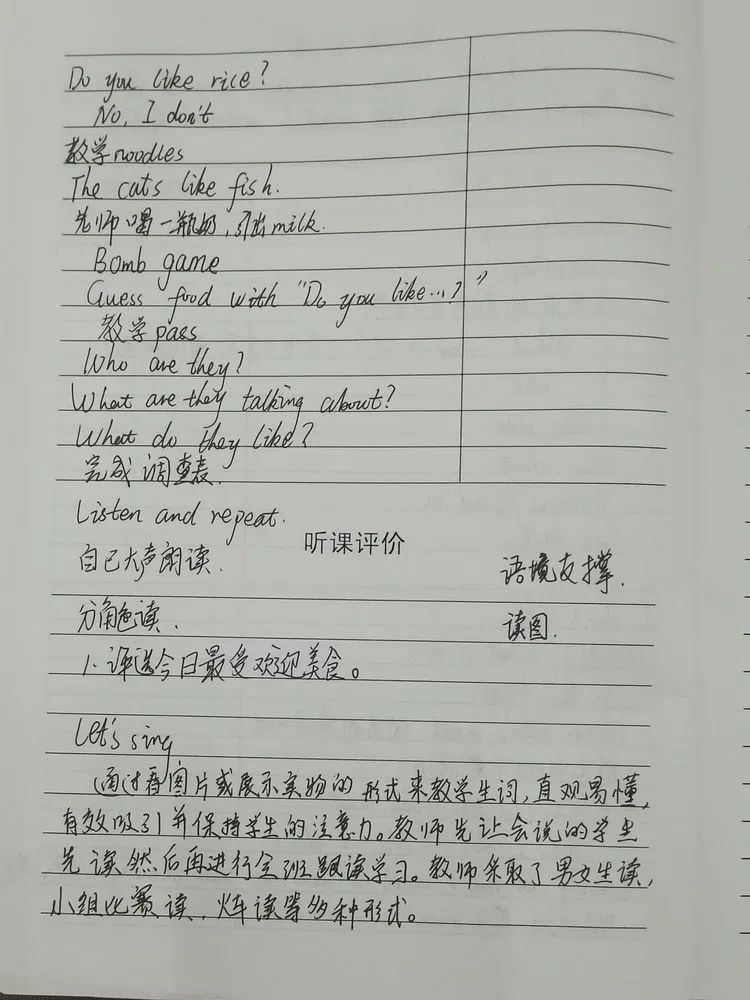 Do you like rice?
No, I don't
教学noodles
The cats like fish.
先师喝一瓶奶,引出milk.
Bomb game
Guess food with "Do you like...?"
教学pass
Who are they?
What are they talking about?
What do they like?
完成调查表.
Listen and repeat.
听课评价
自己大声朗读.
语境支撑.
分角色读.
读图.
1.评选今日最受欢迎美食。
Let's sing
通过看图片或展示实物的形式来教学生词,直观易懂,
有效吸引并保持学生的注意力。教师先让会说的学生
先读然后再进行全班跟读学习。教师采取了男女生读,
小组比赛读,火车读等多种形式。